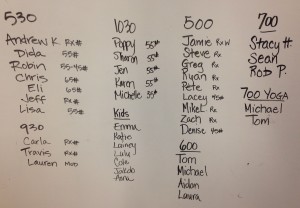 530
Andrew K Rx#
Dida 55#
Robin 55-45#
Chris 65#
Eli 65#
Jeff Rx#
Lisa 55#
930
Carla Rx#
Travis Rx#
Lauren Mod
1030
Poppy 55#
Sharon 55#
Jen 55#
Karen 55#
Michelle 35#
Kids
Emma
Katie
Lainey
Lulu
Cole
Jakob
Anna
500
Jamie Rx W
Steve Rx
Greg Rx
Ryan Rx
Pete Rx
Lacey 45#
Mike L Rx
Zach Rx
Denise 45#
600
Tom
Michael
Aidan
Laura
700
Stacy H.
Sean
Rob P.
700 YOGA
Michael
Tom